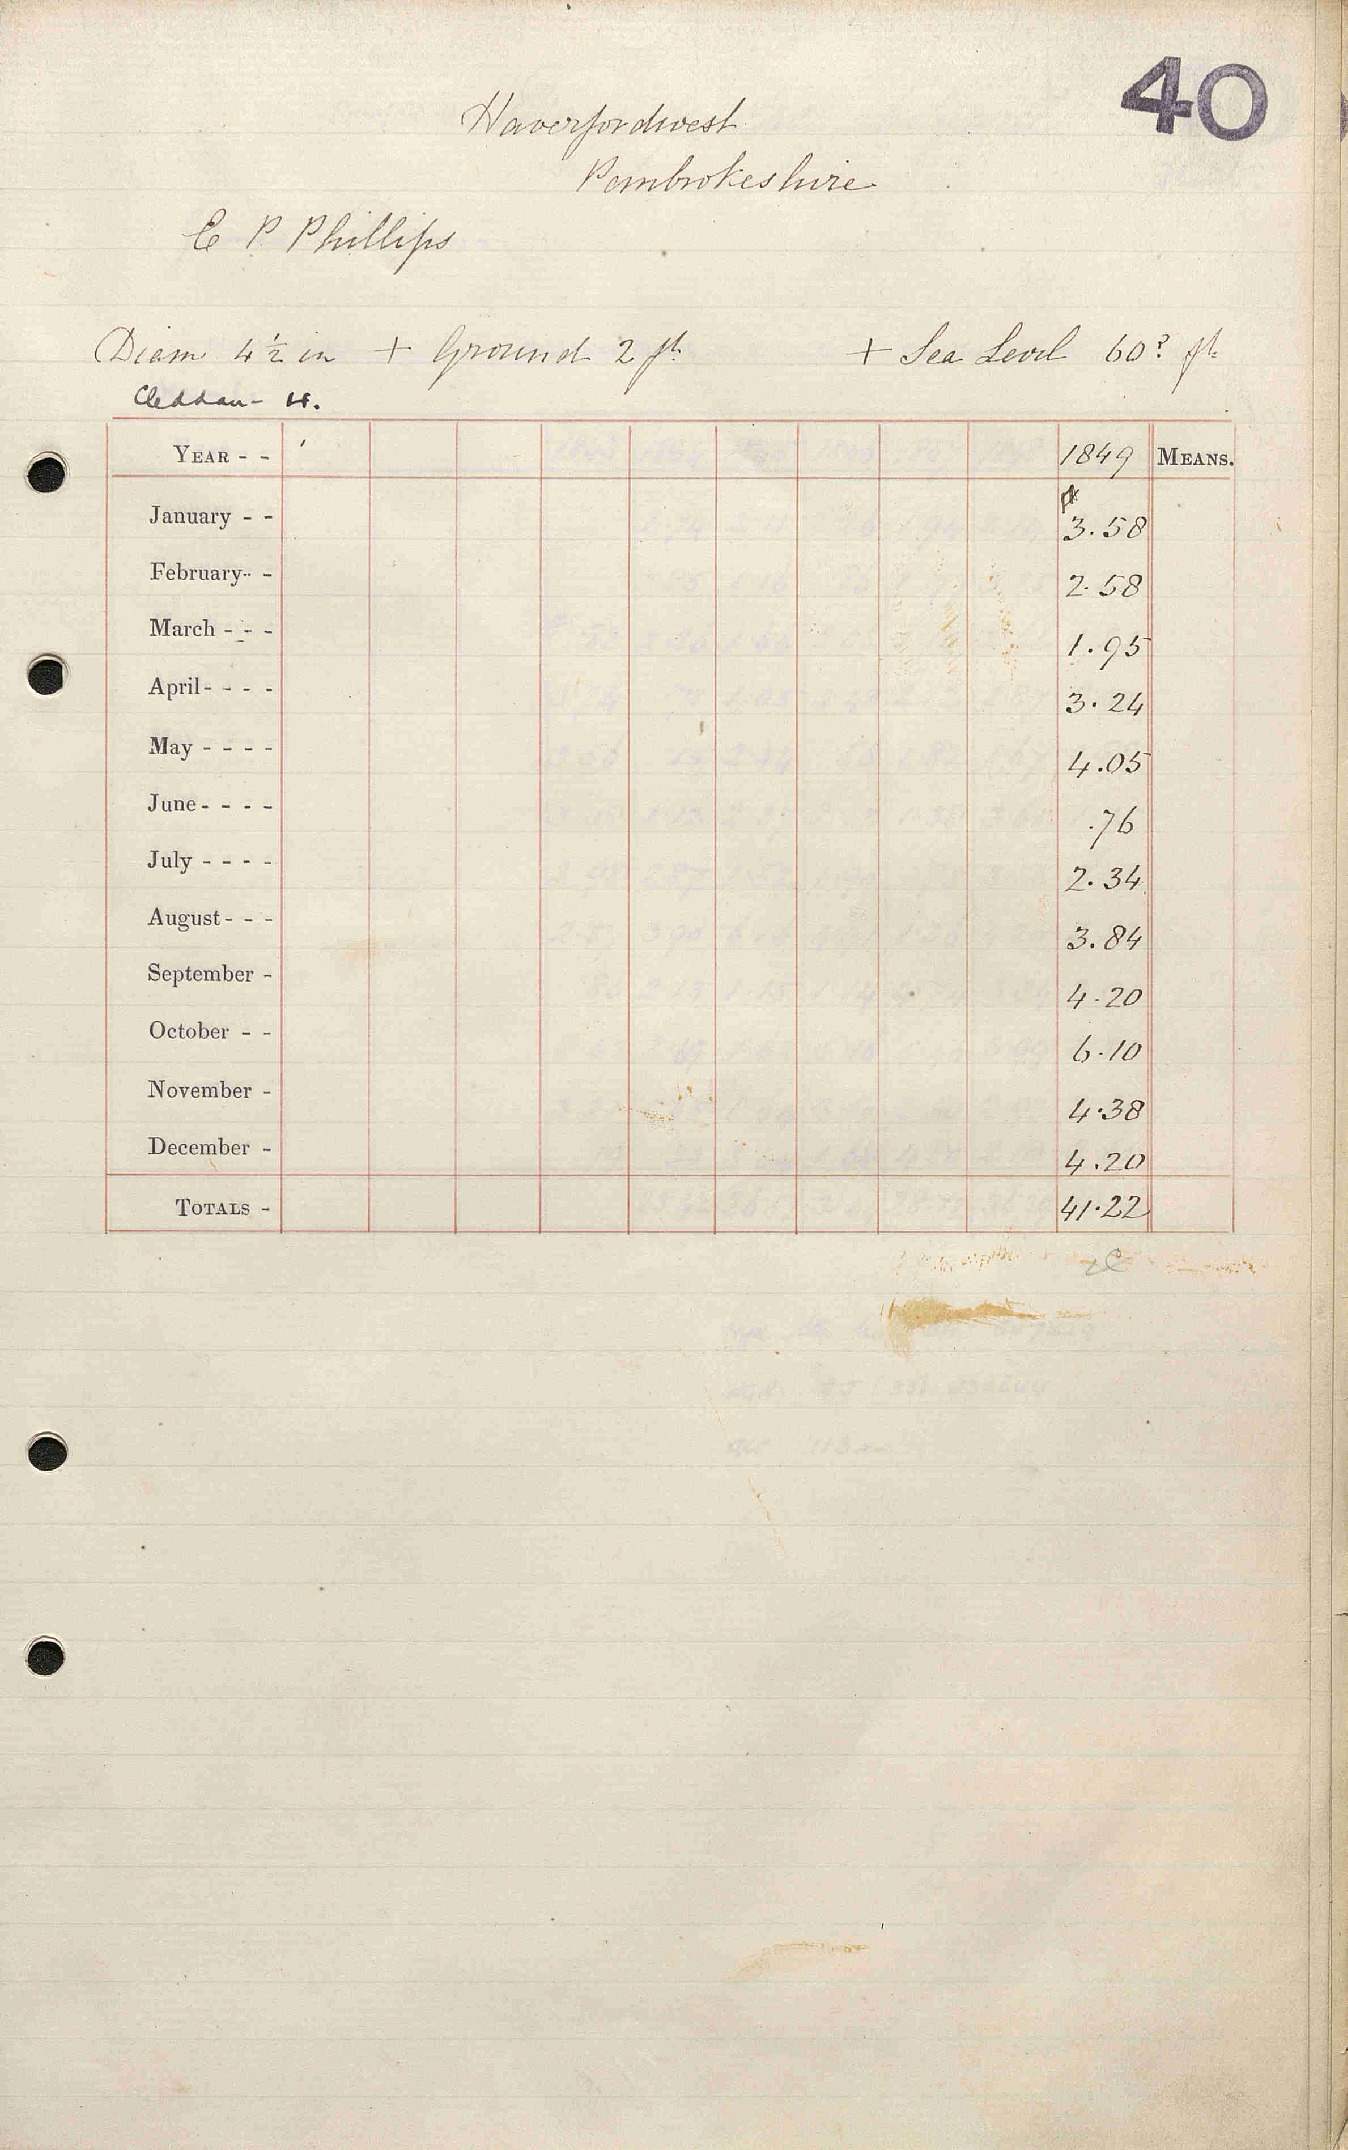 40
Haverfordwest
Pembrokeshire
C P Phillips
Diam 4½ in + Ground 2 ft + Sea Level 60? ft
Cleddau - 4.
YEAR - - 1849 MEANS.
January - - 3.58
February - - 2.58
March - - - 1.95
April - - - - 3.24
May - - - - 4.05
June - - - - .76
July - - - - 2.34
August - - - 3.84
September - 4.20
October - - 6.10
November - 4.38
December - 4.20
TOTALS - 41.22